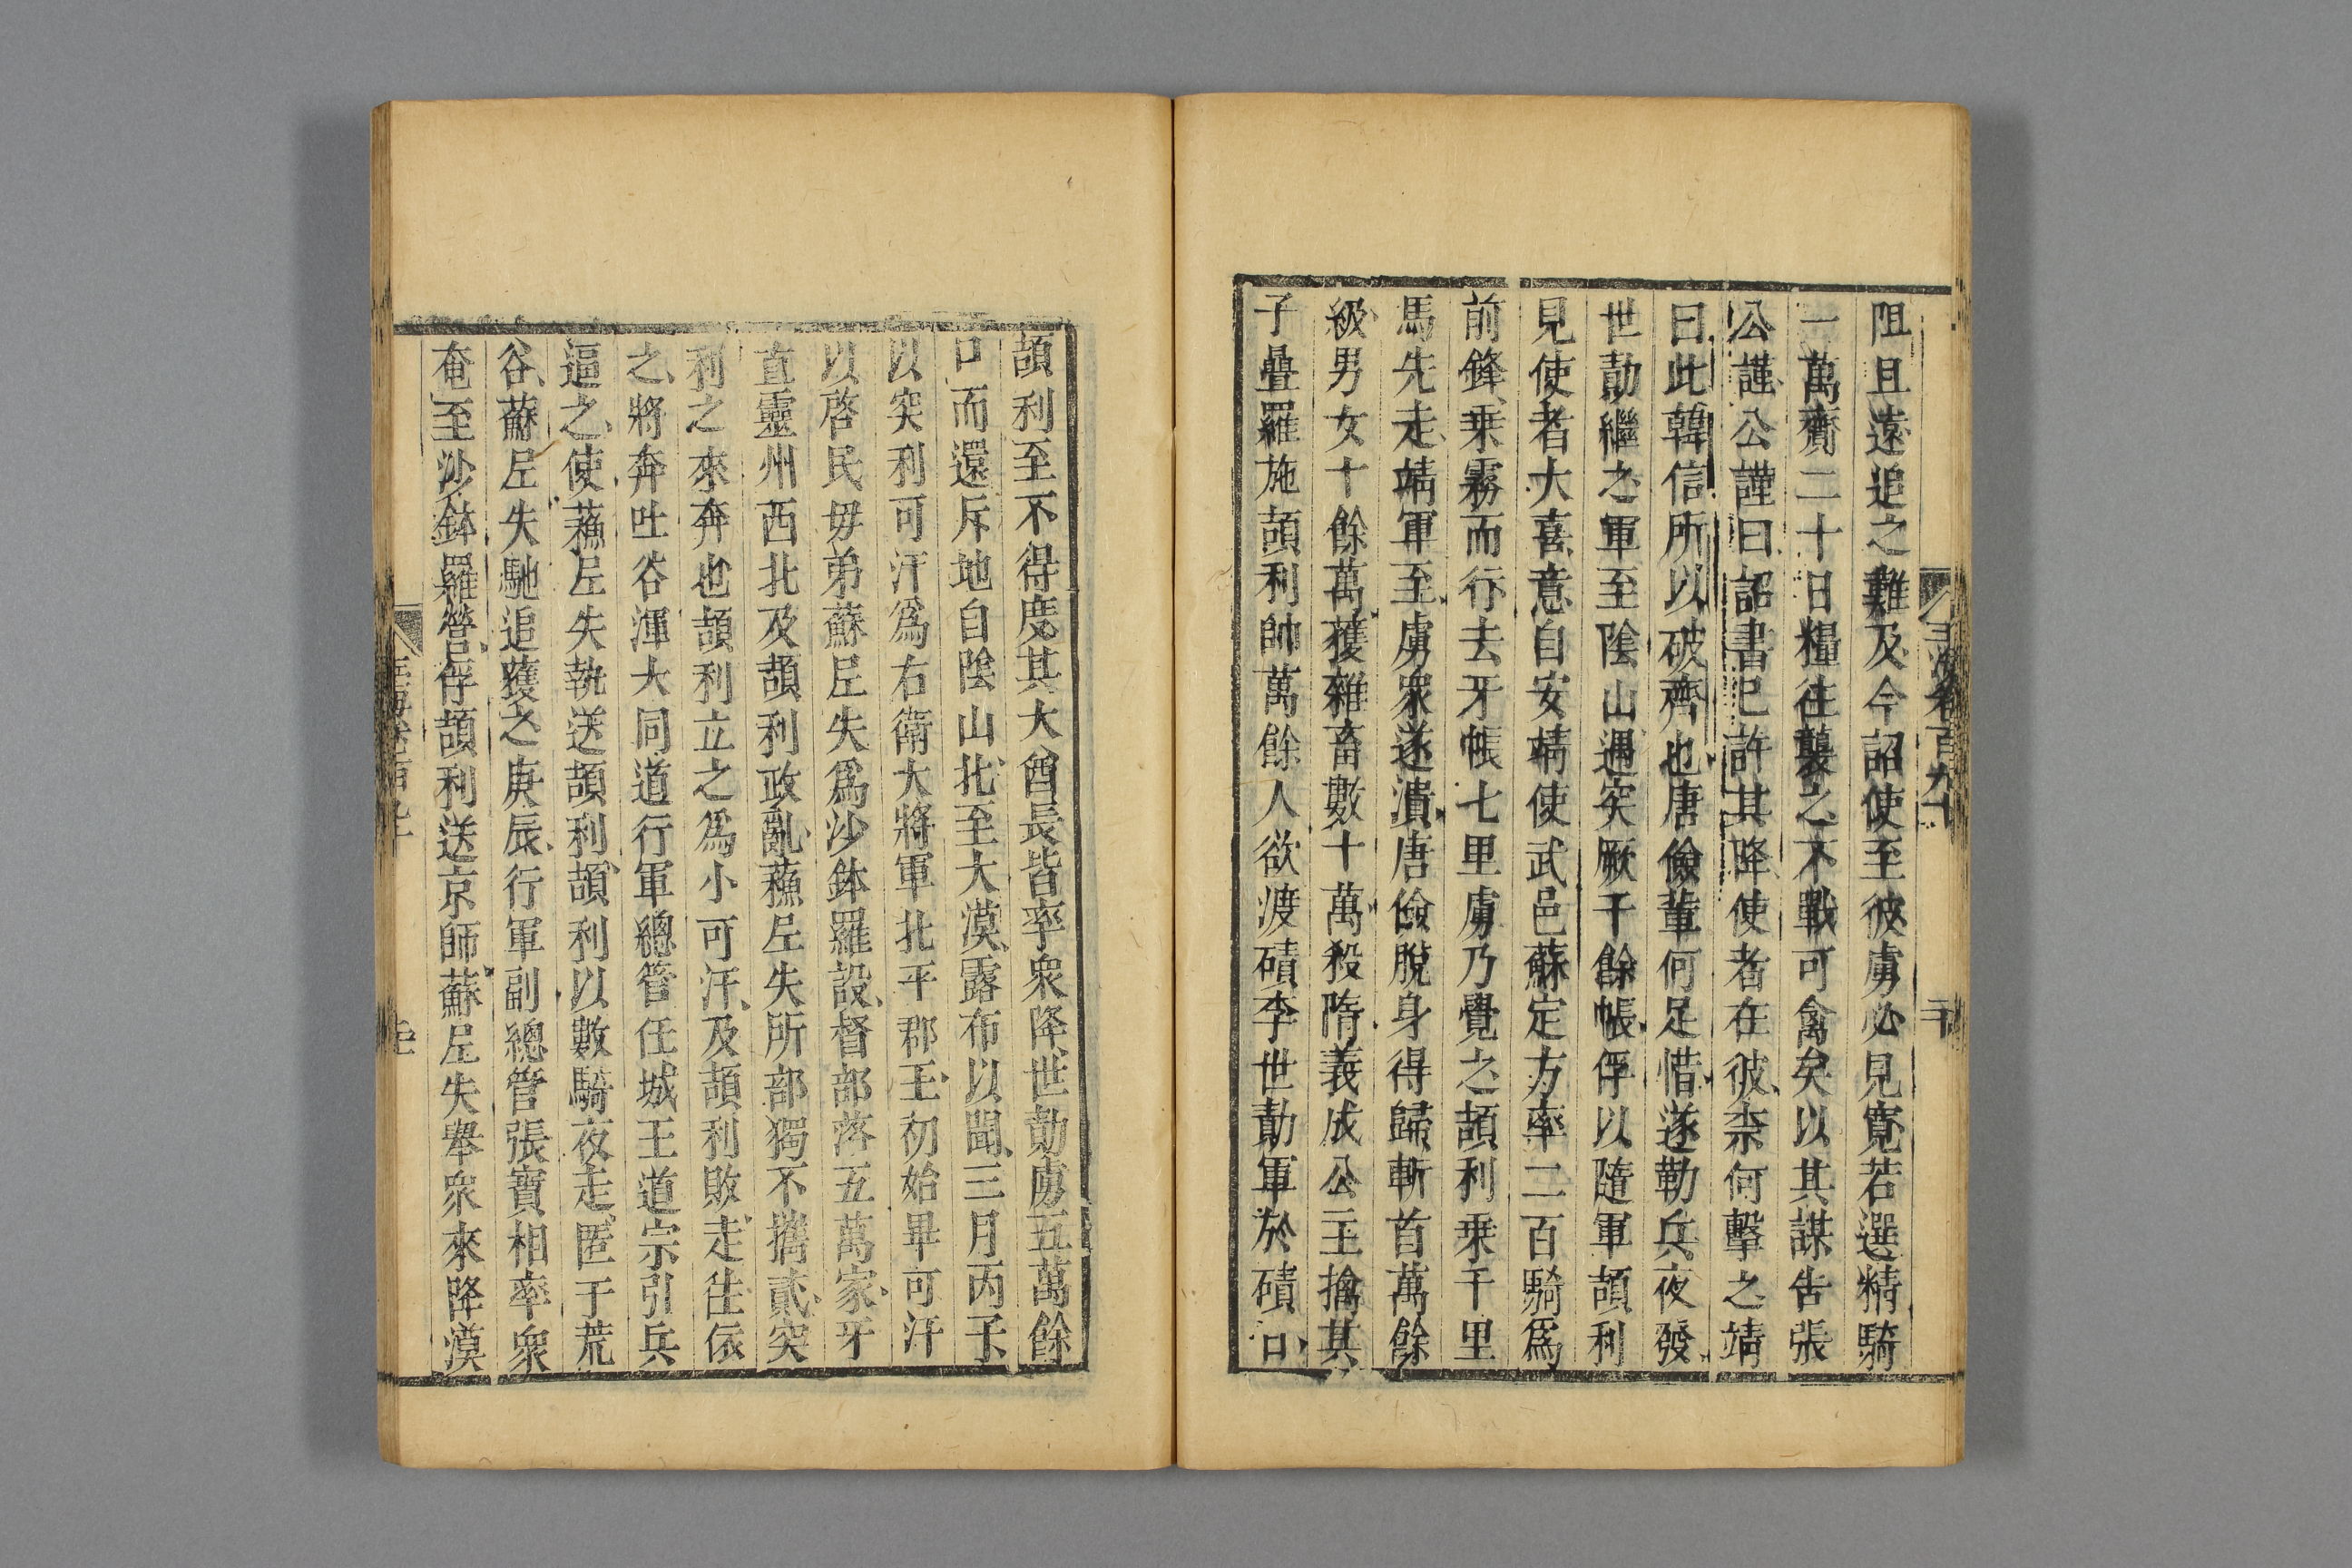 阻且遠追之難及今詔使至彼虜必見寬若選精騎
一萬齎二十日糧往襲之不戰可禽矣以其謀告張
公謹公謹曰詔書已許其降使者在彼柰何擊之靖
曰此韓信所以破齊也唐儉輩何足惜遂勒兵夜發
世勣繼之軍至陰山遇突厥千餘帳俘以隨軍頡利
見使者大喜意自安靖使武邑蘇定方率二百騎爲
前鋒乗霧而行去牙帳七里虜乃覺之頡利乗千里
馬先走靖軍至虜衆遂潰唐儉脫身得歸斬首萬餘
級男女十餘萬獲雜畜數十萬殺隋義成公主擒其
子疊羅施頡利帥萬餘人欲渡磧李世勣軍於磧口
頡利至不得度其大酋長皆率衆降世勣虜五萬餘
口而還斥地自陰山北至大漠露布以聞三月丙子
以突利可汗爲右衛大將軍北平郡王初始畢可汗
以啓民毋弟蘇尼失爲沙鉢羅設督部落五萬家牙
直靈州西北及頡利政亂蘓尼失所部獨不攜貳突
利之來奔也頡利立之爲小可汗及頡利敗走往依
之將奔吐谷渾大同道行軍總管任城王道宗引兵
逼之使蘓尼失執送頡利頡利以數騎夜走匿于荒
谷蘇尼失馳追獲之庚辰行軍副總管張寶相率衆
奄至沙鉢羅營俘頡利送京師蘇尼失舉衆來降漠